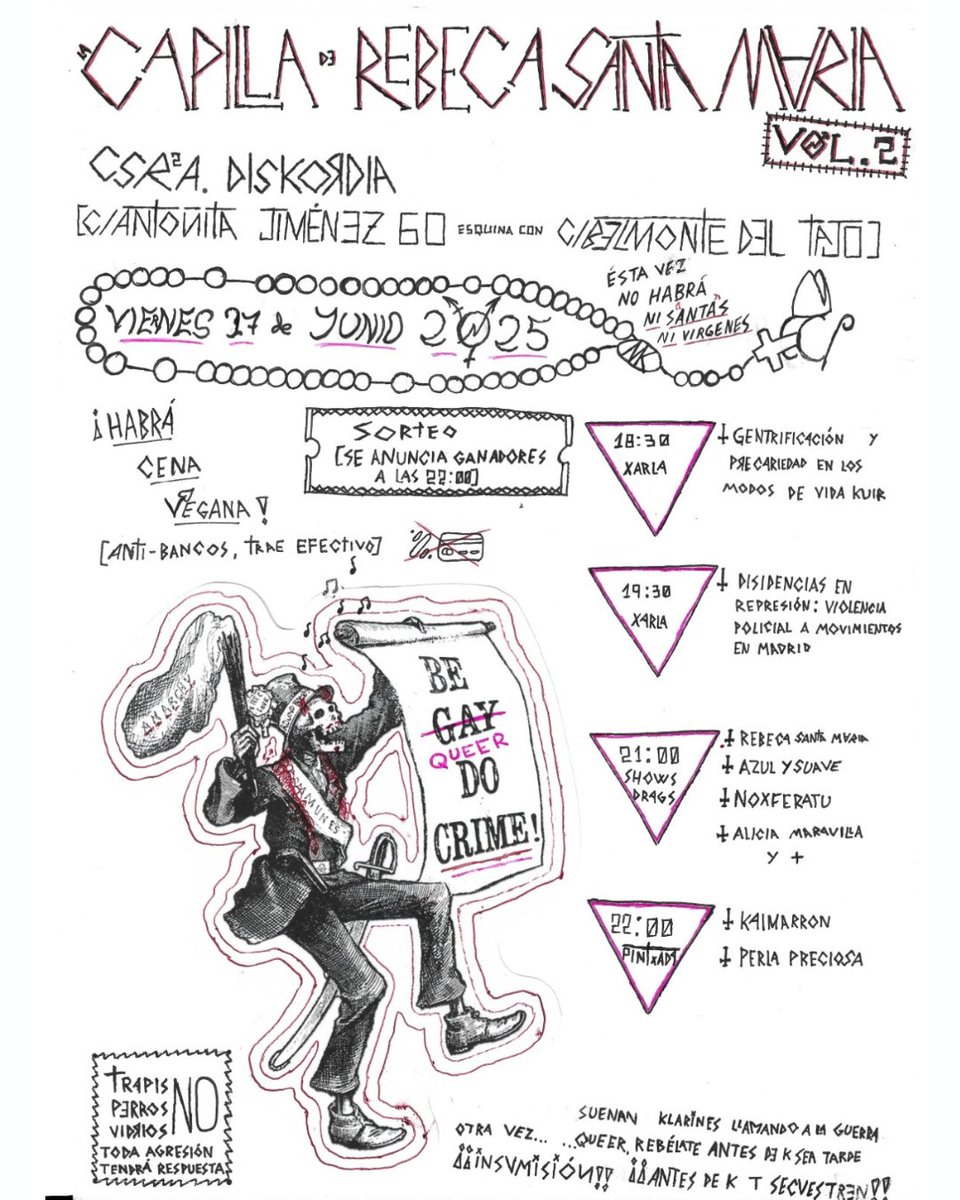 LA CAPILLA DE REBECA SANTA MARIA
VOL.2
CSR²A. DISKORDIA
[C/ANTOÑITA JIMÉNEZ 60 ESQUINA CON C/BELMONTE DEL TAJO]
VIERNES 27 de JUNIO 2025
ÉSTA VEZ
NO HABRÁ
NI SANTAS
NI VIRGENES
NK
¡HABRÁ
CENA
VEGANA!
[ANTI-BANCOS, TRAE EFECTIVO]
SORTEO
[SE ANUNCIA GANADORES
A LAS 22:00]
18:30
XARLA
GENTRIFICACIÓN Y
PRECARIEDAD EN LOS
MODOS DE VIDA KUIR
19:30
XARLA
DISIDENCIAS EN
REPRESIÓN: VIOLENCIA
POLICIAL A MOVIMIENTOS
EN MADRID
21:00
SHOWS
DRAGS
REBECA SANTA MARIA
AZUL Y SUAVE
NOXFERATU
ALICIA MARAVILLA
Y +
22:00
PINTXADA
KAIMARRON
PERLA PRECIOSA
ANARCHY
BE
GAY
QUEER
DO
CRIME!
TRAPIS
PERROS
VIDRIOS
NO
TODA AGRESIÓN
TENDRÁ RESPUESTA
SUENAN KLARINES LLAMANDO A LA GUERRA
OTRA VEZ... ...QUEER, REBÉLATE ANTES DE K SER TARDE
¡¡INSUMISIÓN!! ¡¡ANTES DE K T SECUESTREN!!